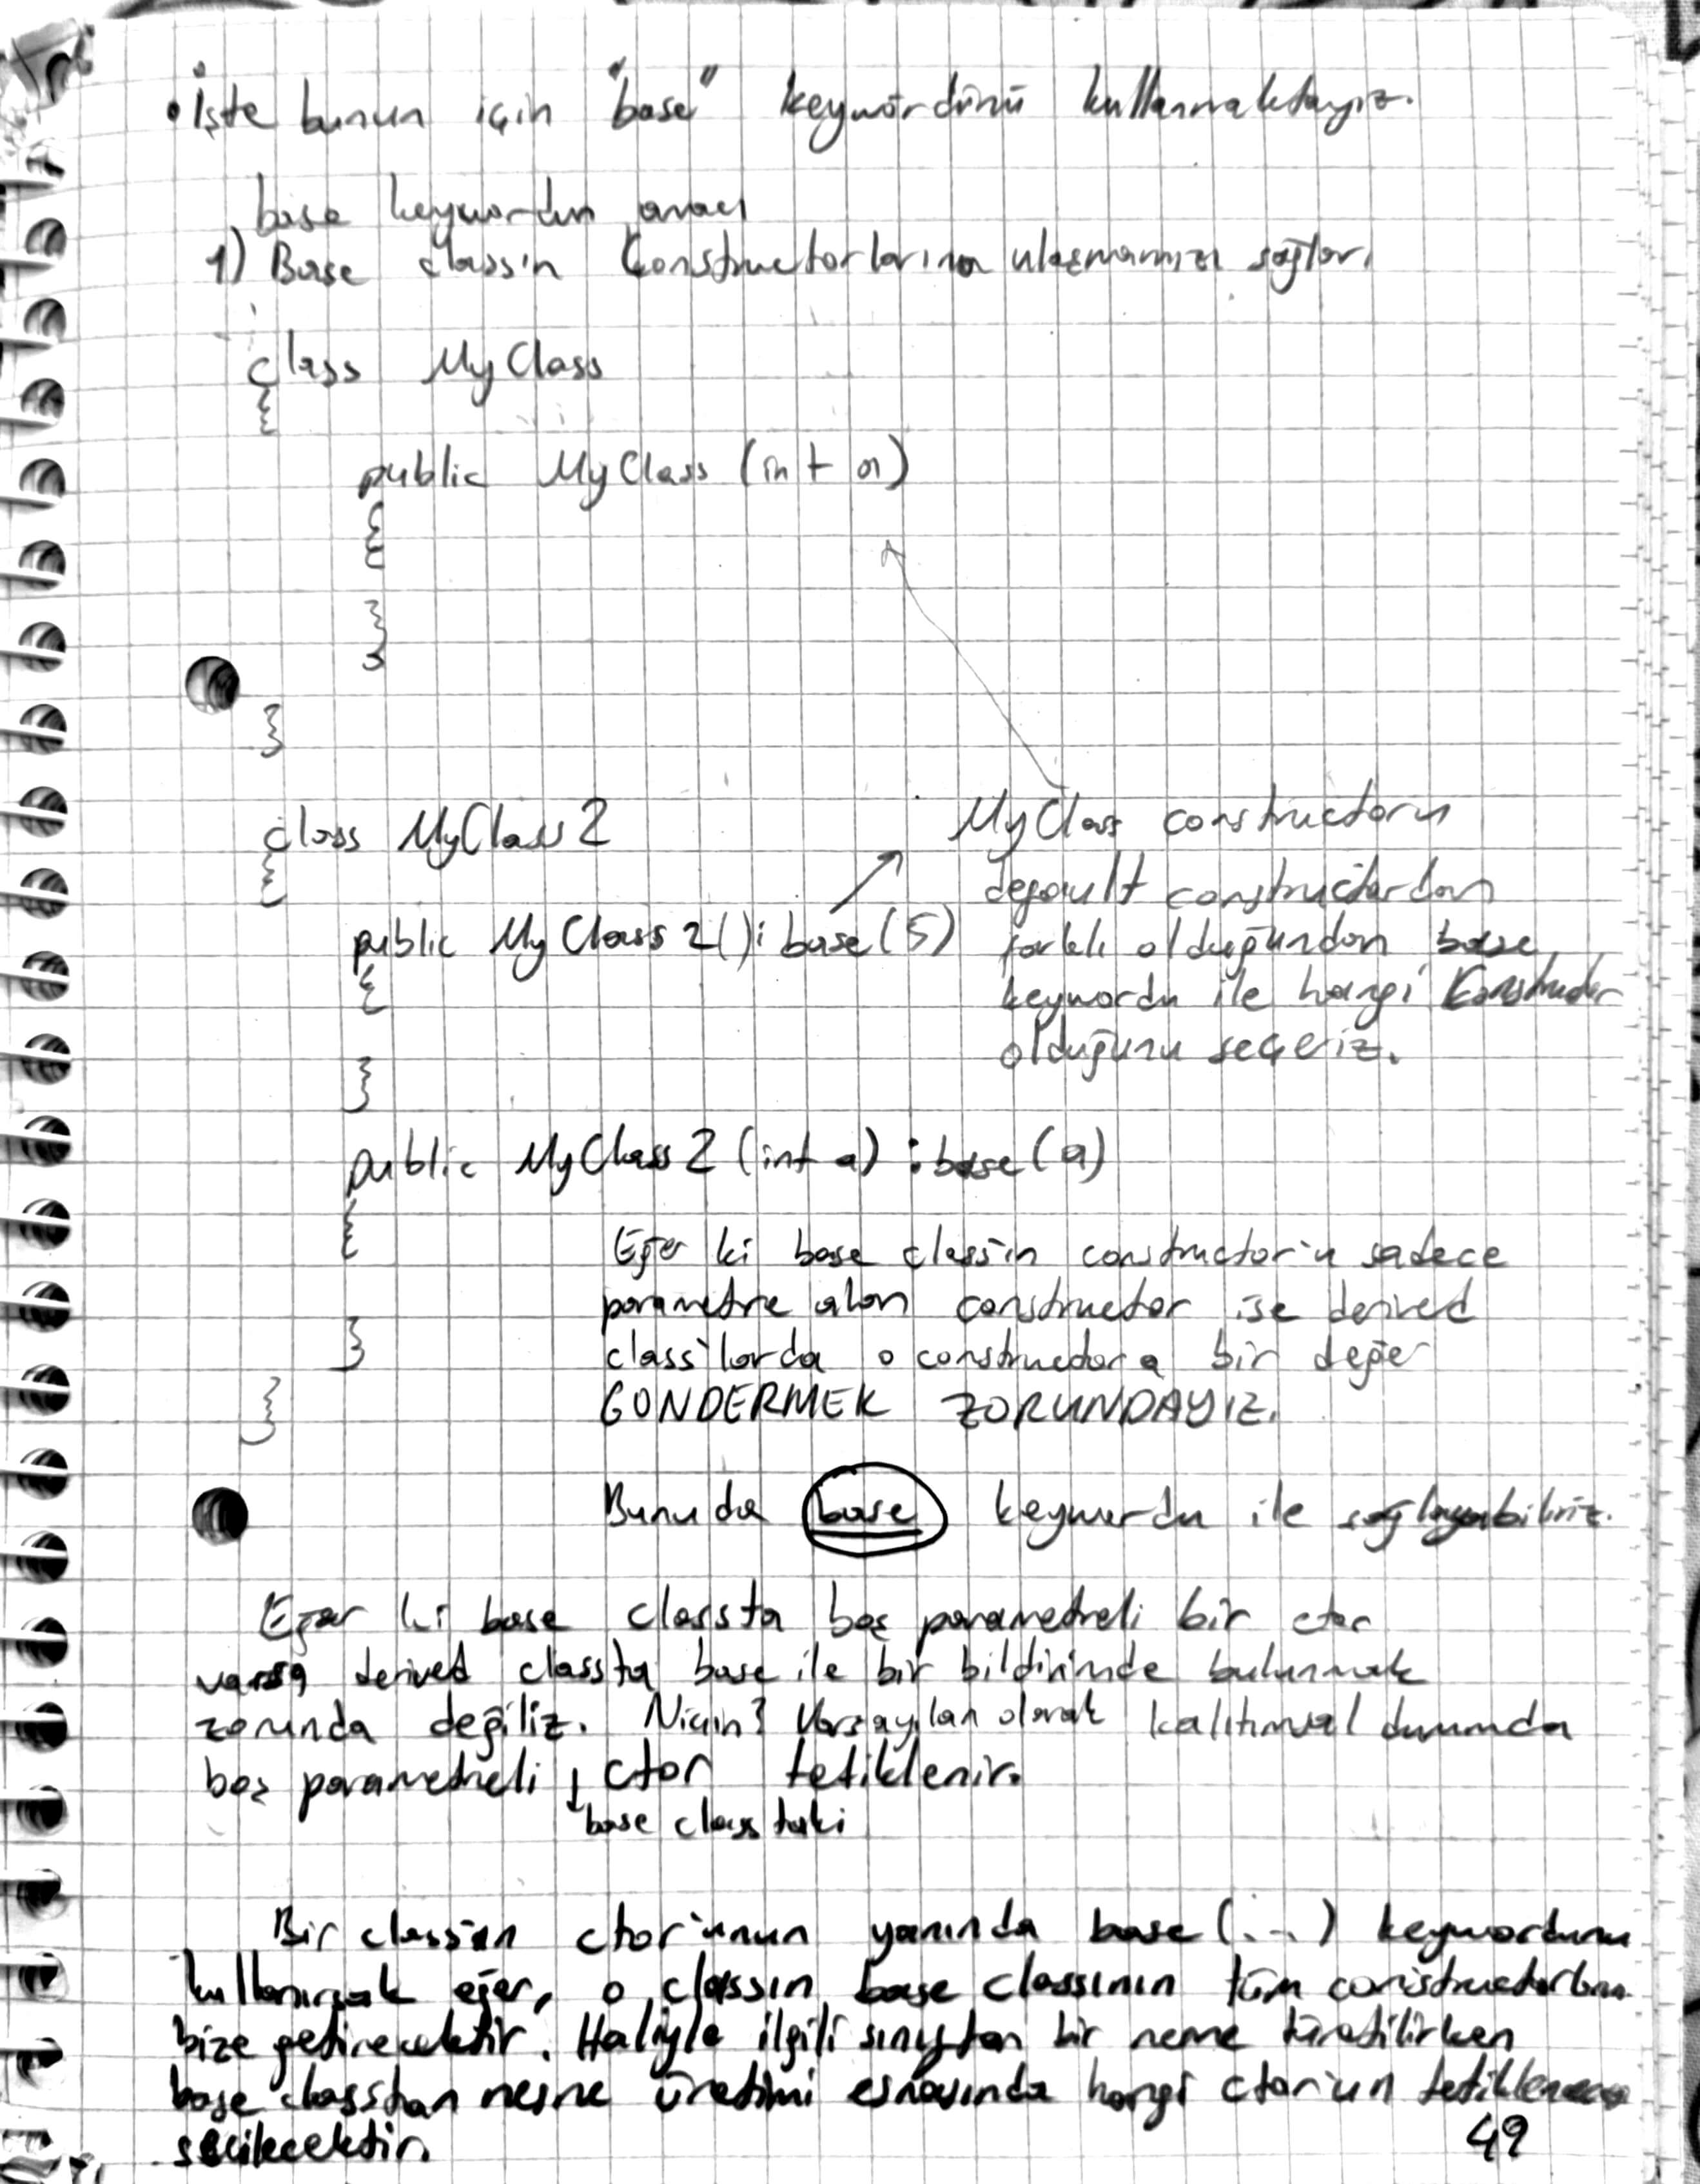 • İşte bunun için "base" keywördünü kullanmaktayız.
base keywordun amacı
1) Base class'ın Constructorlarına ulaşmamızı sağlar.
class MyClass
{
public MyClass (int a)
{
}
}
class MyClass2
{
public MyClass2() : base(5)
{
}
MyClass constructorı
default constructordan
farklı olduğundan base
keywordu ile hangi Constructor
olduğunu seçeriz.
public MyClass2 (int a) : base(a)
{
}
}
Eğer ki base class'ın constructor'u sadece
parametre alan constructor ise derived
class'larda o constructora bir değer
GÖNDERMEK ZORUNDAYIZ.
Bunu da base keywordu ile sağlayabiliriz.
Eğer ki base classta boş parametreli bir ctor
varsa derived classta base ile bir bildirimde bulunmak
zorunda değiliz. Niçin? Varsayılan olarak kalıtımsal durumda
boş parametreli ↓ ctor tetiklenir.
base class taki
Bir class'ın ctor'unun yanında base (...) keywordunu
kullanırsak eğer, o classın base classının tüm constructorlarını
bize getirecektir. Haliyle ilgili sınıftan bir nesne türetilirken
base classtan nesne üretimi esnasında hangi ctor'un
seçilecektir.
49